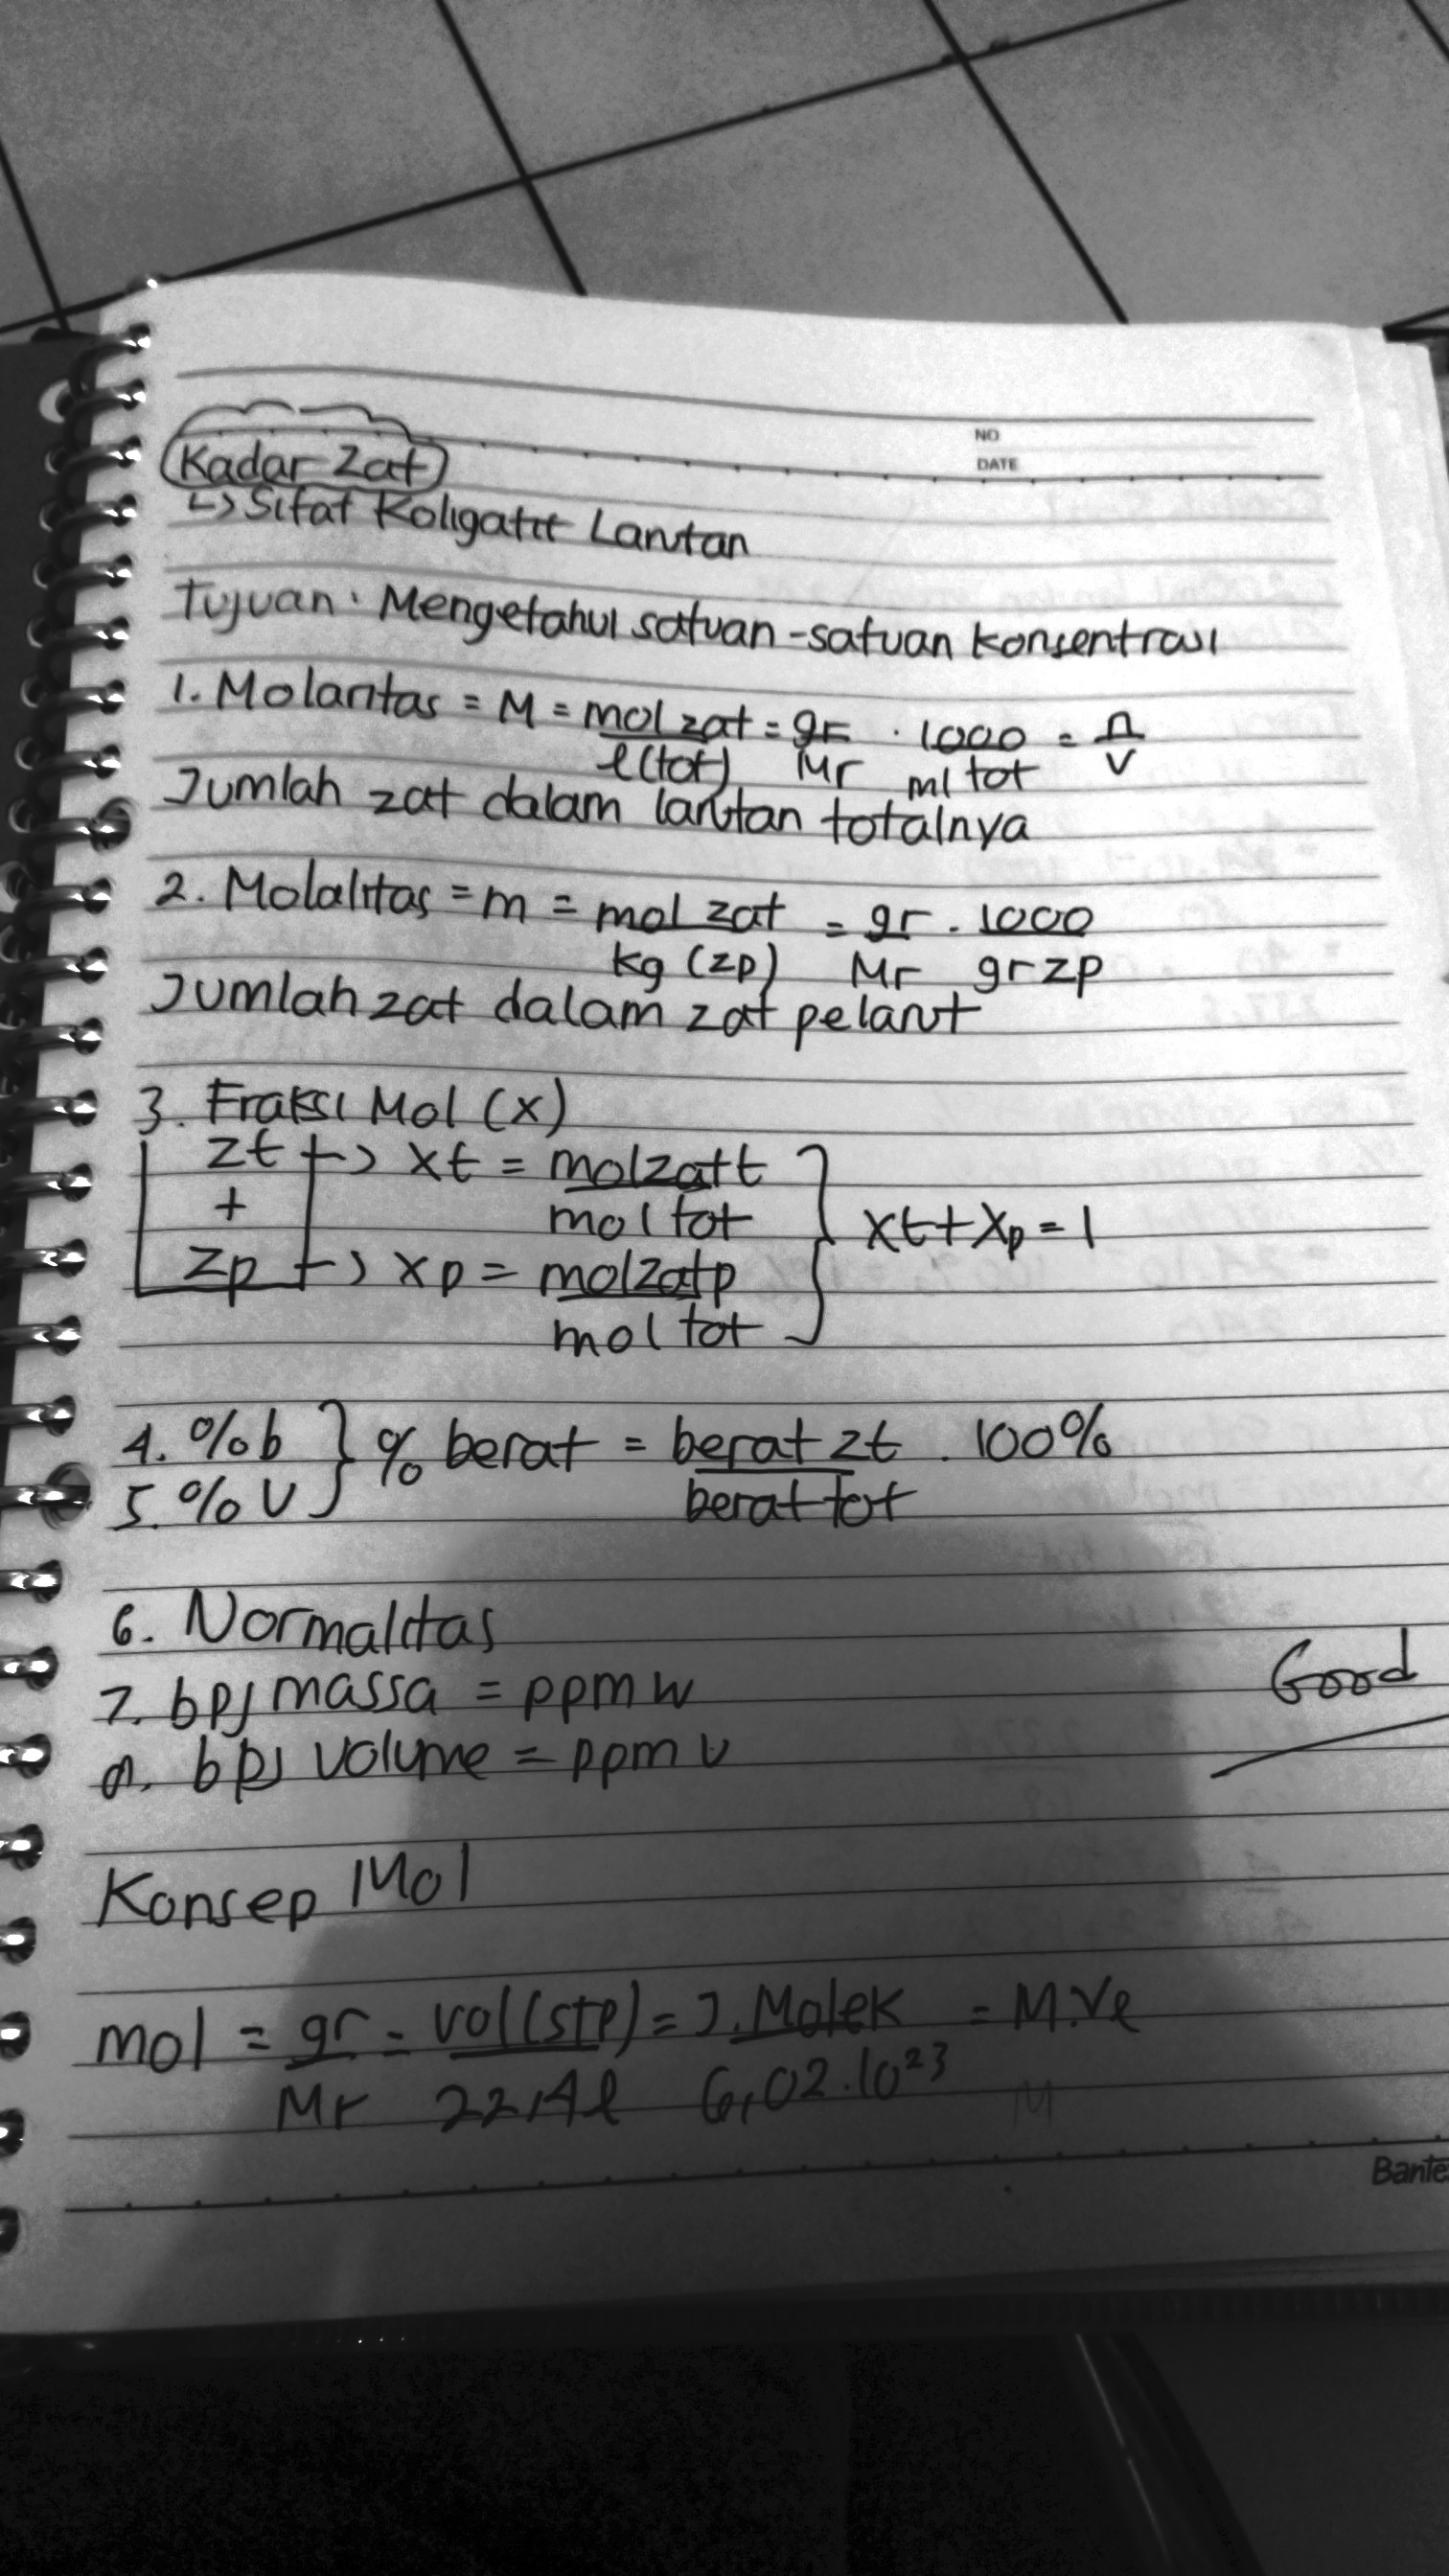 NO
DATE
Kadar Zat
↳ Sifat Koligatif Larutan
Tujuan : Mengetahui satuan-satuan konsentrasi
1. Molaritas = M = mol zat = gr . 1000 = n
l(tot) Mr ml tot v
Jumlah zat dalam larutan totalnya
2. Molalitas = m = mol zat = gr . 1000
kg (zp) Mr gr zp
Jumlah zat dalam zat pelarut
3. Fraksi Mol (x)
zt → xt = mol zat t
+ mol tot } xt + xp = 1
zp → xp = mol zat p
mol tot
4. %b } % berat = berat zt . 100%
5. %v berat tot
6. Normalitas
7. bpj massa = ppm w
Good
8. bpj volume = ppm v
Konsep Mol
mol = gr = vol (stp) = J. Molek = M.Vl
Mr 22,4 l 6,02.10²³
Bante